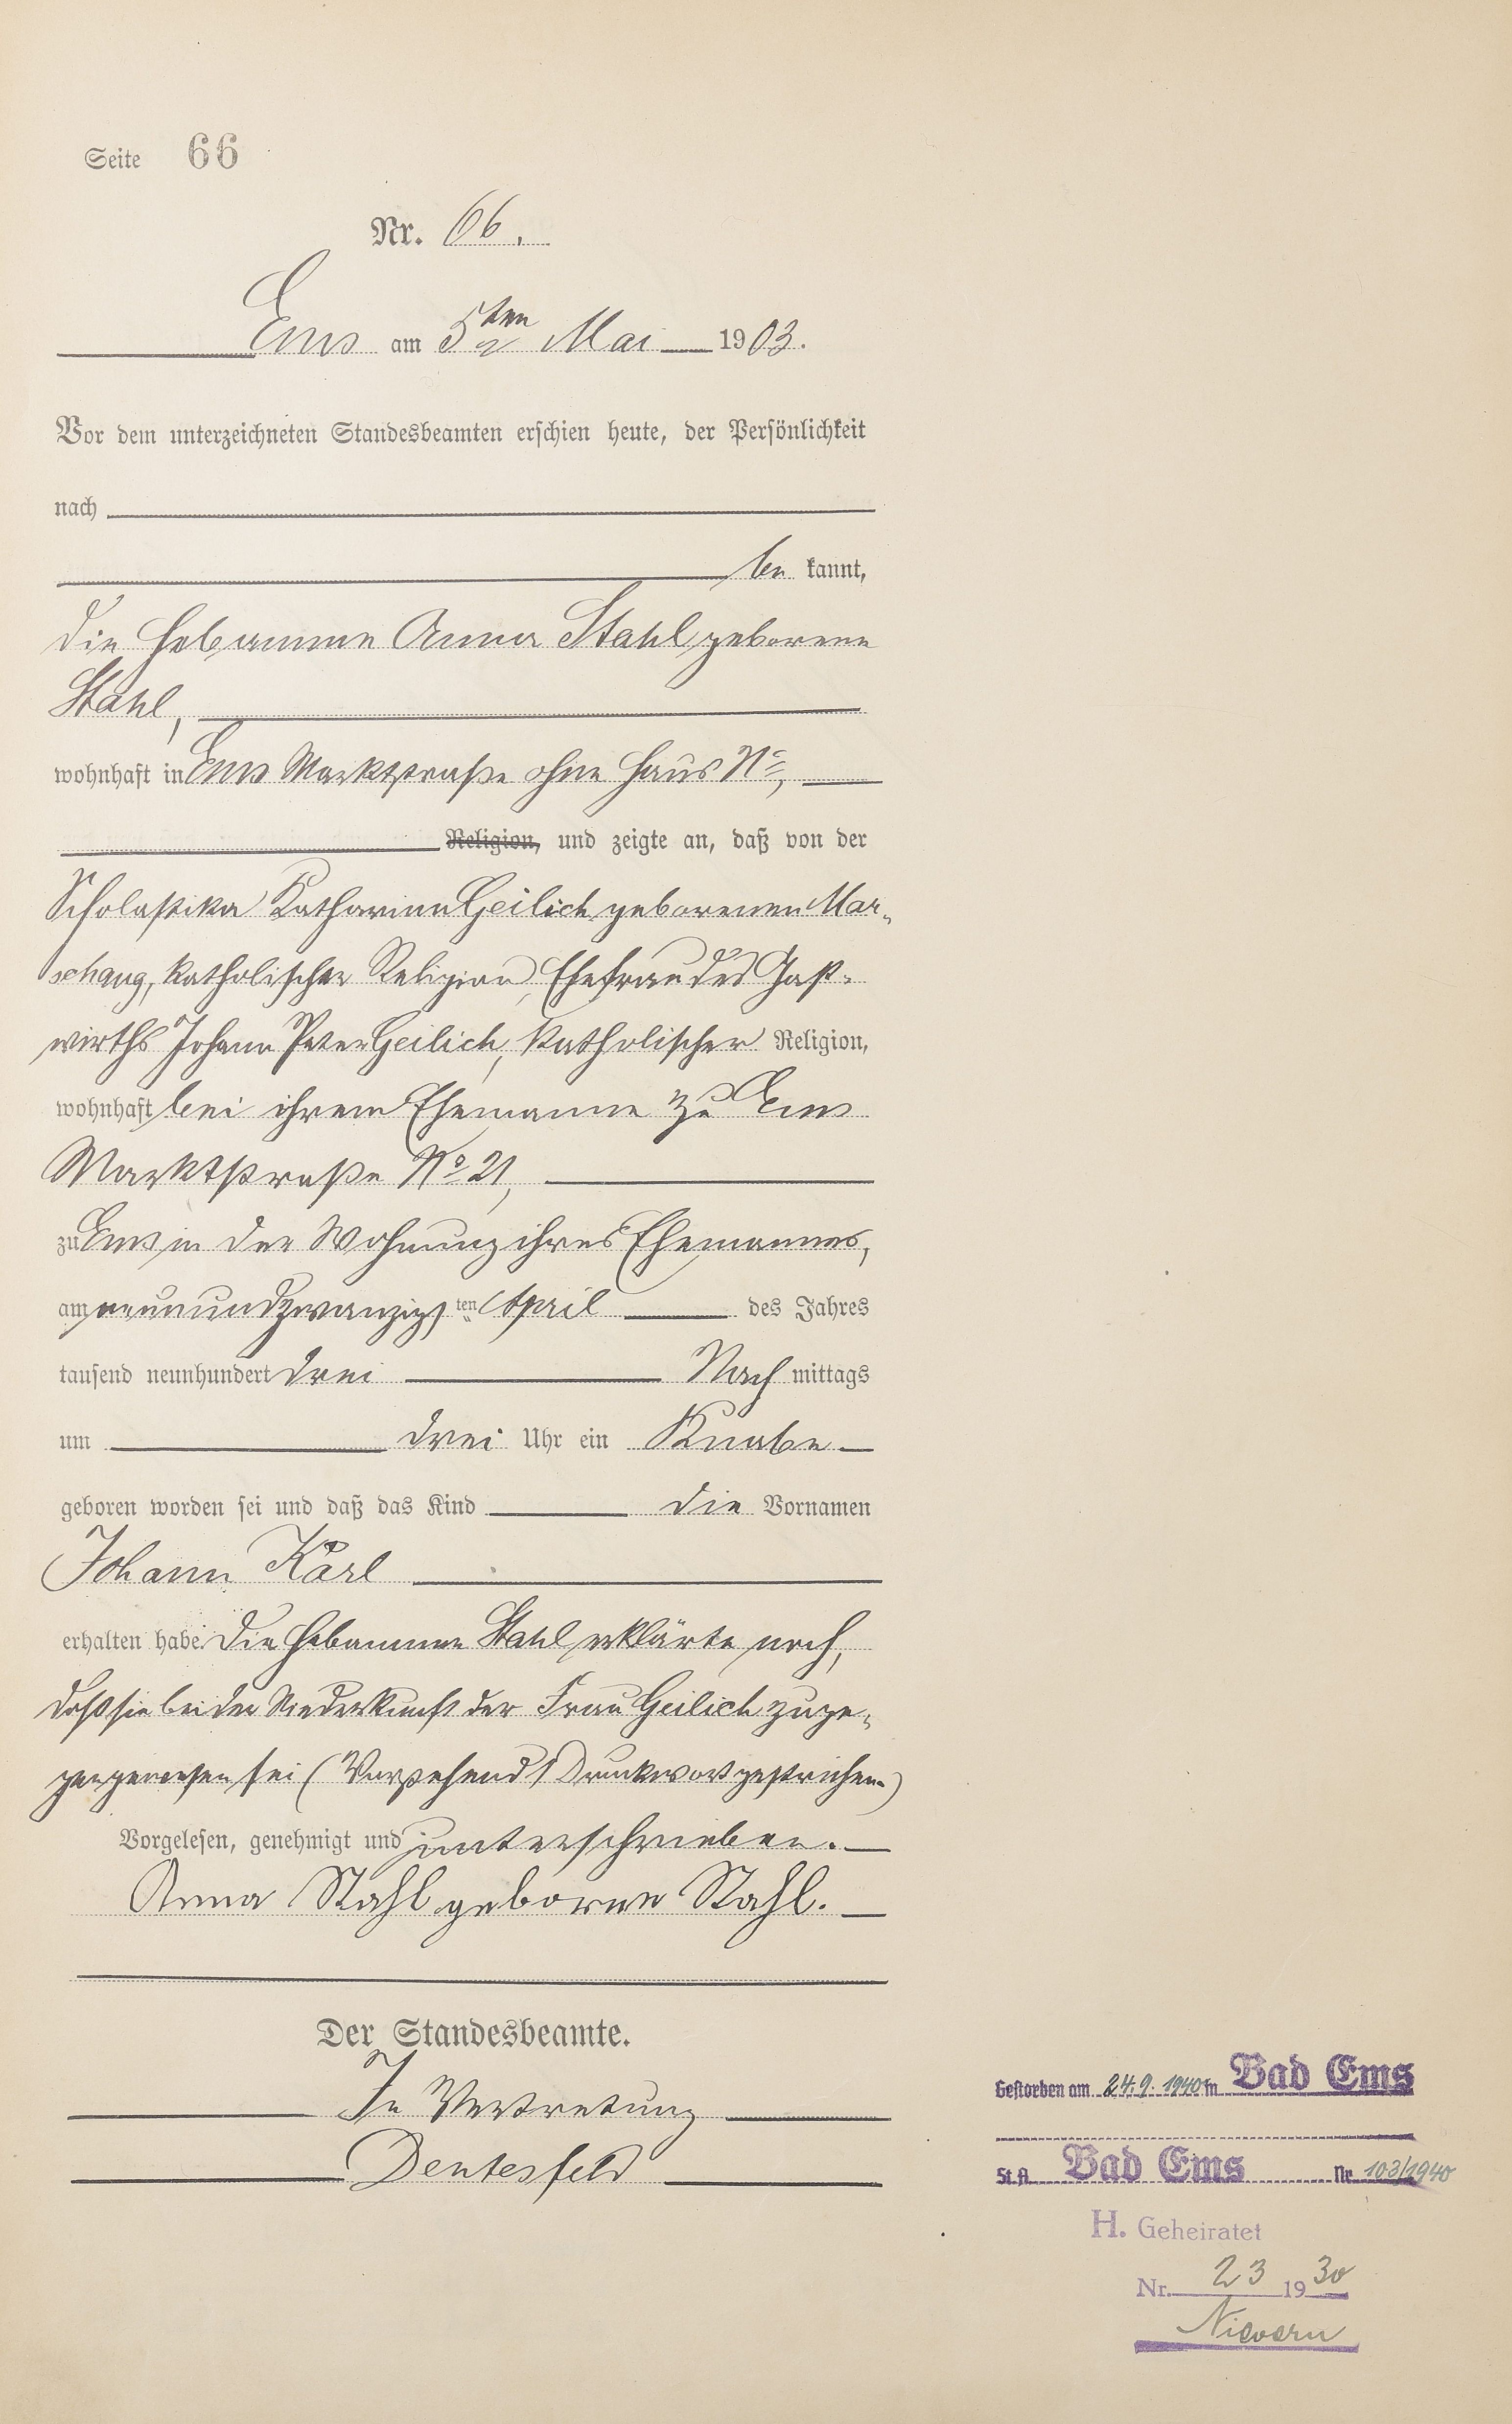 Seite 66
Nr. 66.
Ems am 5ten Mai 1903.
Vor dem unterzeichneten Standesbeamten erschien heute, der Persönlichkeit
nach
be kannt,
die Hebamme Anna Stahl geborene
Stahl,
wohnhaft in Ems Marktstraße ohne Haus No,
Religion, und zeigte an, daß von der
Scholastika Katharina Geilich geborenen Mar-
schang, katholischer Religion, Ehefrau des Gast-
wirths Johann Peter Geilich, katholischer Religion,
wohnhaft bei ihrem Ehemanne zu Ems
Marktstraße No 21,
zu Ems in der Wohnung ihres Ehemannes,
am neunundzwanzigsten April des Jahres
tausend neunhundert drei Nach mittags
um drei Uhr ein Knabe
geboren worden sei und daß das Kind die Vornamen
Johann Karl
erhalten habe. Die Hebamme Stahl erklärte noch,
daß sie bei der Niederkunft der Frau Geilich zuge-
gen gewesen sei (Vorstehend 1 Druckwort gestrichen)
Vorgelesen, genehmigt und unterschrieben.
Anna Stahl geborne Stahl.
Der Standesbeamte.
In Vertretung
Dentesfeld
Gestorben am 24.9.1940 in Bad Ems
St.A. Bad Ems Nr. 103/1940
H. Geheiratet
Nr. 23 1930
Nievern